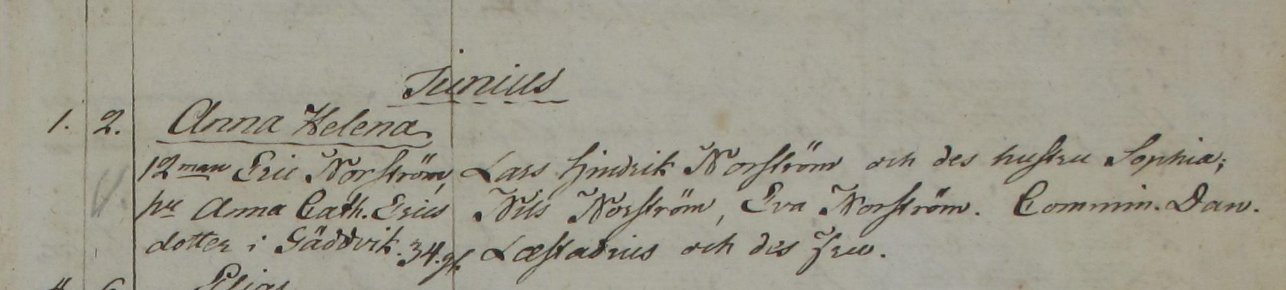 Junius
1. 2. Anna Helena
12man Eric Norström, Lars Hindrik Norström och des hustru Sophia;
hu Anna Cath. Erics Nils Norström, Eva Norström. Commin. Dan.
dotter i Gäddvik. 34. Læstadius och des Fru.
4. 6. Elias